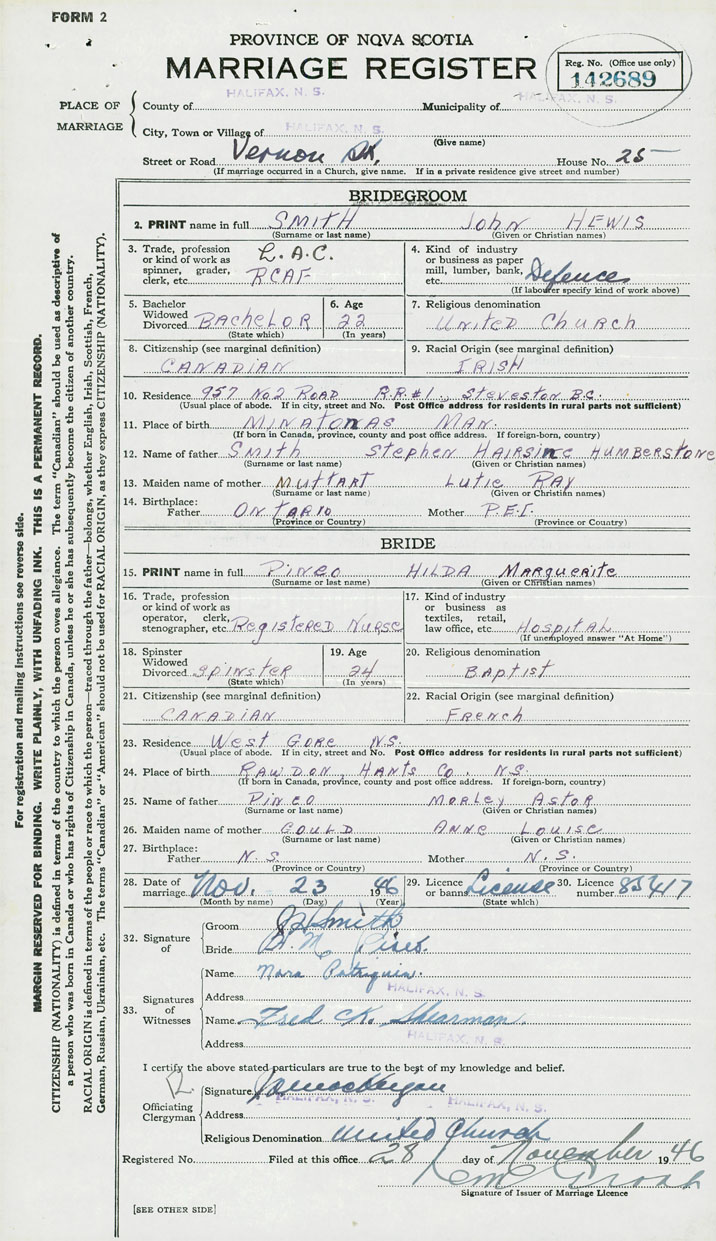 FORM 2
PROVINCE OF NOVA SCOTIA
MARRIAGE REGISTER
Reg. No. (Office use only)
142689
PLACE OF MARRIAGE
County of HALIFAX, N. S. Municipality of HALIFAX, N. S.
City, Town or Village of HALIFAX, N. S.
(Give name)
Street or Road Vernon St. House No. 25
(If marriage occurred in a Church, give name. If in a private residence give street and number)
BRIDEGROOM
2. PRINT name in full SMITH John HEWIS
(Surname or last name) (Given or Christian names)
3. Trade, profession or kind of work as spinner, grader, clerk, etc. L.A.C. RCAF
4. Kind of industry or business as paper mill, lumber, bank, etc. Defence
(If labourer specify kind of work above)
5. Bachelor Widowed Divorced BACHELOR
(State which)
6. Age 22
(In years)
7. Religious denomination UNITED CHURCH
8. Citizenship (see marginal definition) CANADIAN
9. Racial Origin (see marginal definition) IRISH
10. Residence 957 No 2 ROAD R.R#1, STEVESTON B.C.
(Usual place of abode. If in city, street and No. Post Office address for residents in rural parts not sufficient)
11. Place of birth MINATONAS MAN.
(If born in Canada, province, county and post office address. If foreign-born, country)
12. Name of father Smith Stephen HAIRSINE HUMBERSTONE
(Surname or last name) (Given or Christian names)
13. Maiden name of mother MUTTART LUTIE RAY
(Surname or last name) (Given or Christian names)
14. Birthplace:
Father ONTARIO Mother P.E.I.
(Province or Country) (Province or Country)
BRIDE
15. PRINT name in full PINEO HILDA MARGUERITE
(Surname or last name) (Given or Christian names)
16. Trade, profession or kind of work as operator, clerk, stenographer, etc. REGISTERED NURSE
17. Kind of industry or business as textiles, retail, law office, etc. HOSPITAL
(If unemployed answer "At Home")
18. Spinster Widowed Divorced SPINSTER
(State which)
19. Age 24
(In years)
20. Religious denomination BAPTIST
21. Citizenship (see marginal definition) CANADIAN
22. Racial Origin (see marginal definition) FRENCH
23. Residence WEST GORE N.S.
(Usual place of abode. If in city, street and No. Post Office address for residents in rural parts not sufficient)
24. Place of birth RAWDON, HANTS CO. N.S.
(If born in Canada, province, county and post office address. If foreign-born, country)
25. Name of father PINEO MORLEY ASTOR
(Surname or last name) (Given or Christian names)
26. Maiden name of mother GOULD ANNE LOUISE
(Surname or last name) (Given or Christian names)
27. Birthplace:
Father N.S. Mother N.S.
(Province or Country) (Province or Country)
28. Date of marriage Nov. 23 1946
(Month by name) (Day) (Year)
29. Licence or banns License
(State which)
30. Licence number 83417
32. Signature of
Groom J H Smith
Bride H. M. Pineo.
33. Signatures of Witnesses
Name Nora Patriquin.
Address HALIFAX, N. S.
Name Fred K. Shearman.
Address HALIFAX, N. S.
I certify the above stated particulars are true to the best of my knowledge and belief.
Officiating Clergyman
Signature
Address HALIFAX, N. S. HALIFAX, N. S.
Religious Denomination United Church
Registered No. Filed at this office 28 day of November 1946
Signature of Issuer of Marriage Licence
[SEE OTHER SIDE]
For registration and mailing instructions see reverse side.
MARGIN RESERVED FOR BINDING. WRITE PLAINLY, WITH UNFADING INK. THIS IS A PERMANENT RECORD.
CITIZENSHIP (NATIONALITY) is defined in terms of the country to which the person owes allegiance. The term "Canadian" should be used as descriptive of
a person who was born in Canada or who has rights of Citizenship in Canada, unless he or she has subsequently become the citizen of another country.
RACIAL ORIGIN is defined in terms of the people or race to which the person—traced through the father—belongs, whether English, Irish, Scottish, French,
German, Russian, Ukrainian, etc. The terms "Canadian" or "American" should not be used for RACIAL ORIGIN, as they express CITIZENSHIP (NATIONALITY).